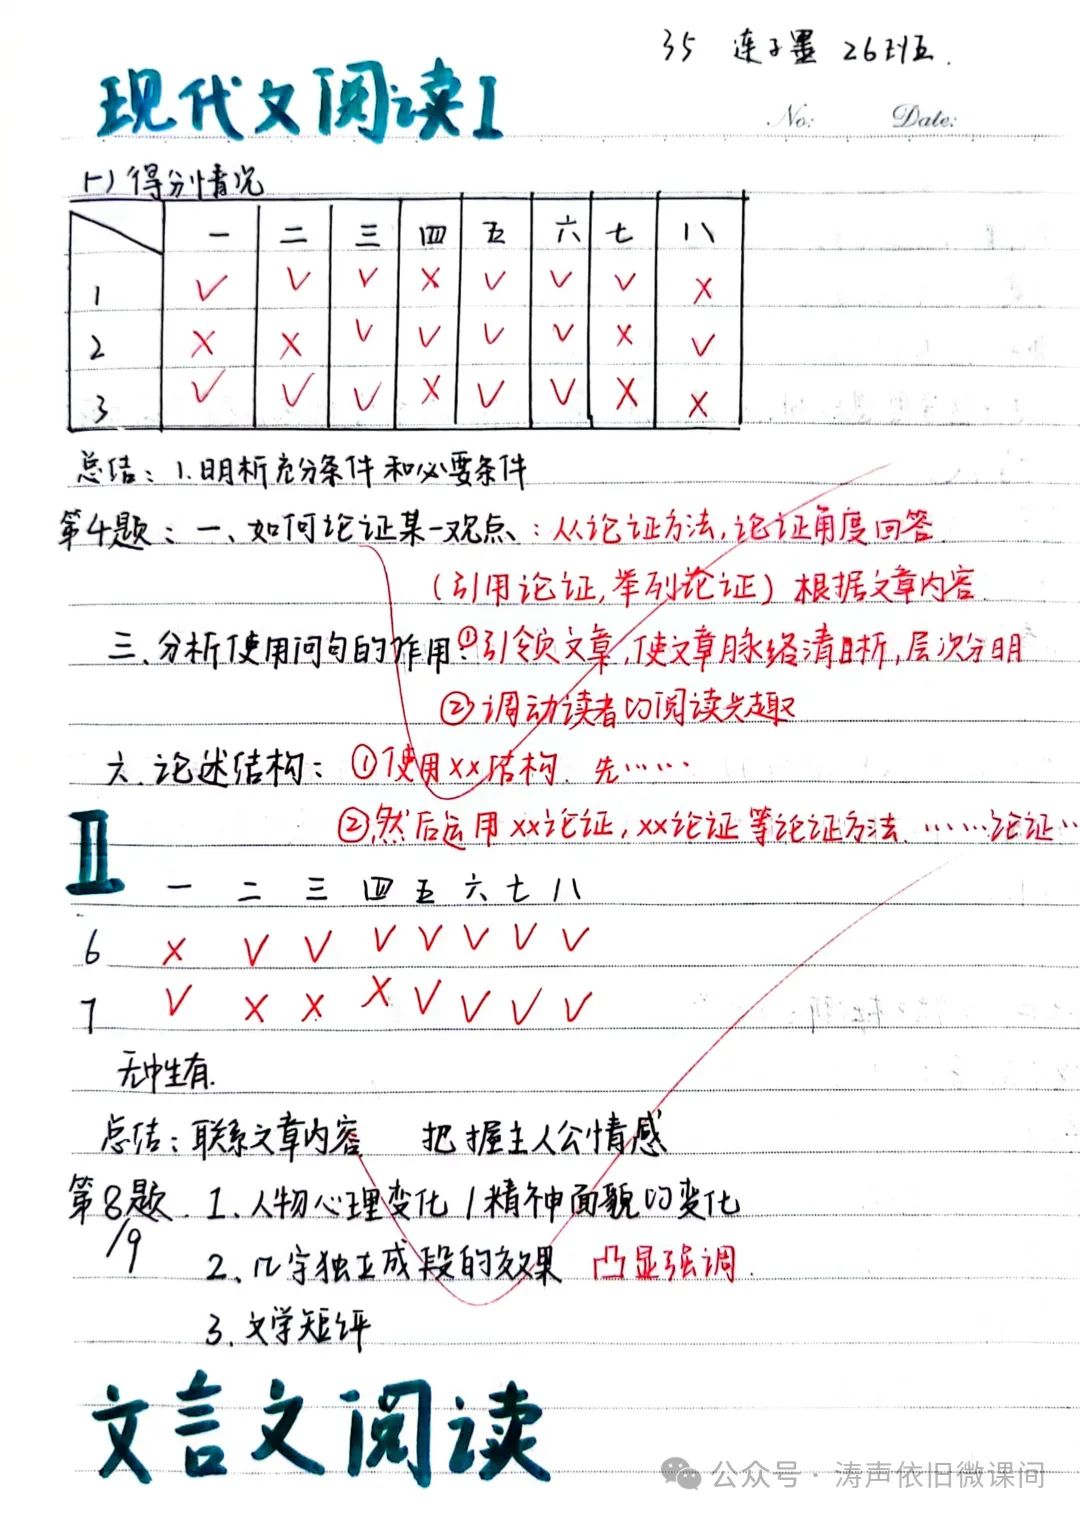 35 连子墨 26班
现代文阅读I
No: Date:
(一)得分情况
一 二 三 四 五 六 七 八
1 ✓ ✓ ✓ × ✓ ✓ ✓ ×
2 × × ✓ ✓ ✓ ✓ × ✓
3 ✓ ✓ ✓ × ✓ ✓ × ×
总结：1.明析充分条件和必要条件
第4题：一、如何论证某一观点：从论证方法,论证角度回答
(引用论证,举列论证) 根据文章内容.
三.分析使用问句的作用：①引领文章,使文章脉络清晰,层次分明
②调动读者的阅读兴趣
六.论述结构：①使用××结构. 先……
②然后运用××论证,××论证等论证方法.……论证…
II
一 二 三 四 五 六 七 八
6 × ✓ ✓ ✓ ✓ ✓ ✓ ✓
7 ✓ × × × ✓ ✓ ✓ ✓
无中生有.
总结：联系文章内容 把握主人公情感
第8题. 1、人物心理变化/精神面貌的变化
/9
2、几字独立成段的效果 凸显强调.
3.文学短评
文言文阅读
公众号·涛声依旧微课间